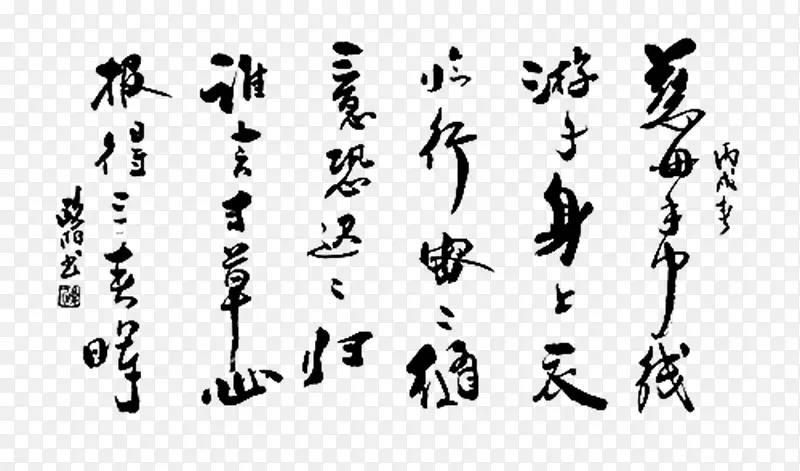 丙戌春
慈母手中线
游子身上衣
临行密々缝
意恐迟々归
谁言寸草心
报得三春晖
书